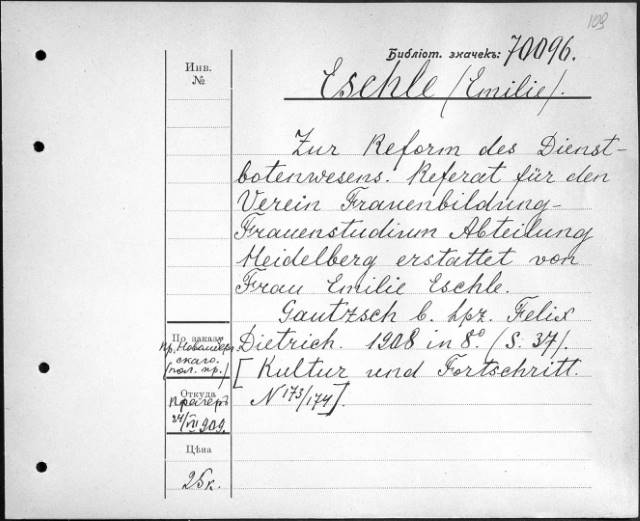 109
Библіот. значекъ: 70096.
Инв.
№
Eschle (Emilie).
Zur Reform des Dienst-
botenwesens. Referat für den
Verein Frauenbildung-
Frauenstudium Abteilung
Heidelberg erstattet von
Frau Emilie Eschle.
Gautzsch b. Lpz. Felix
Dietrich. 1908 in 8° (S. 37).
[Kultur und Fortschritt.
N 173/174].
По заказу
пр.
скаго.
(пол. пр.)
Откуда
24/VII 909.
Цѣна
25к.